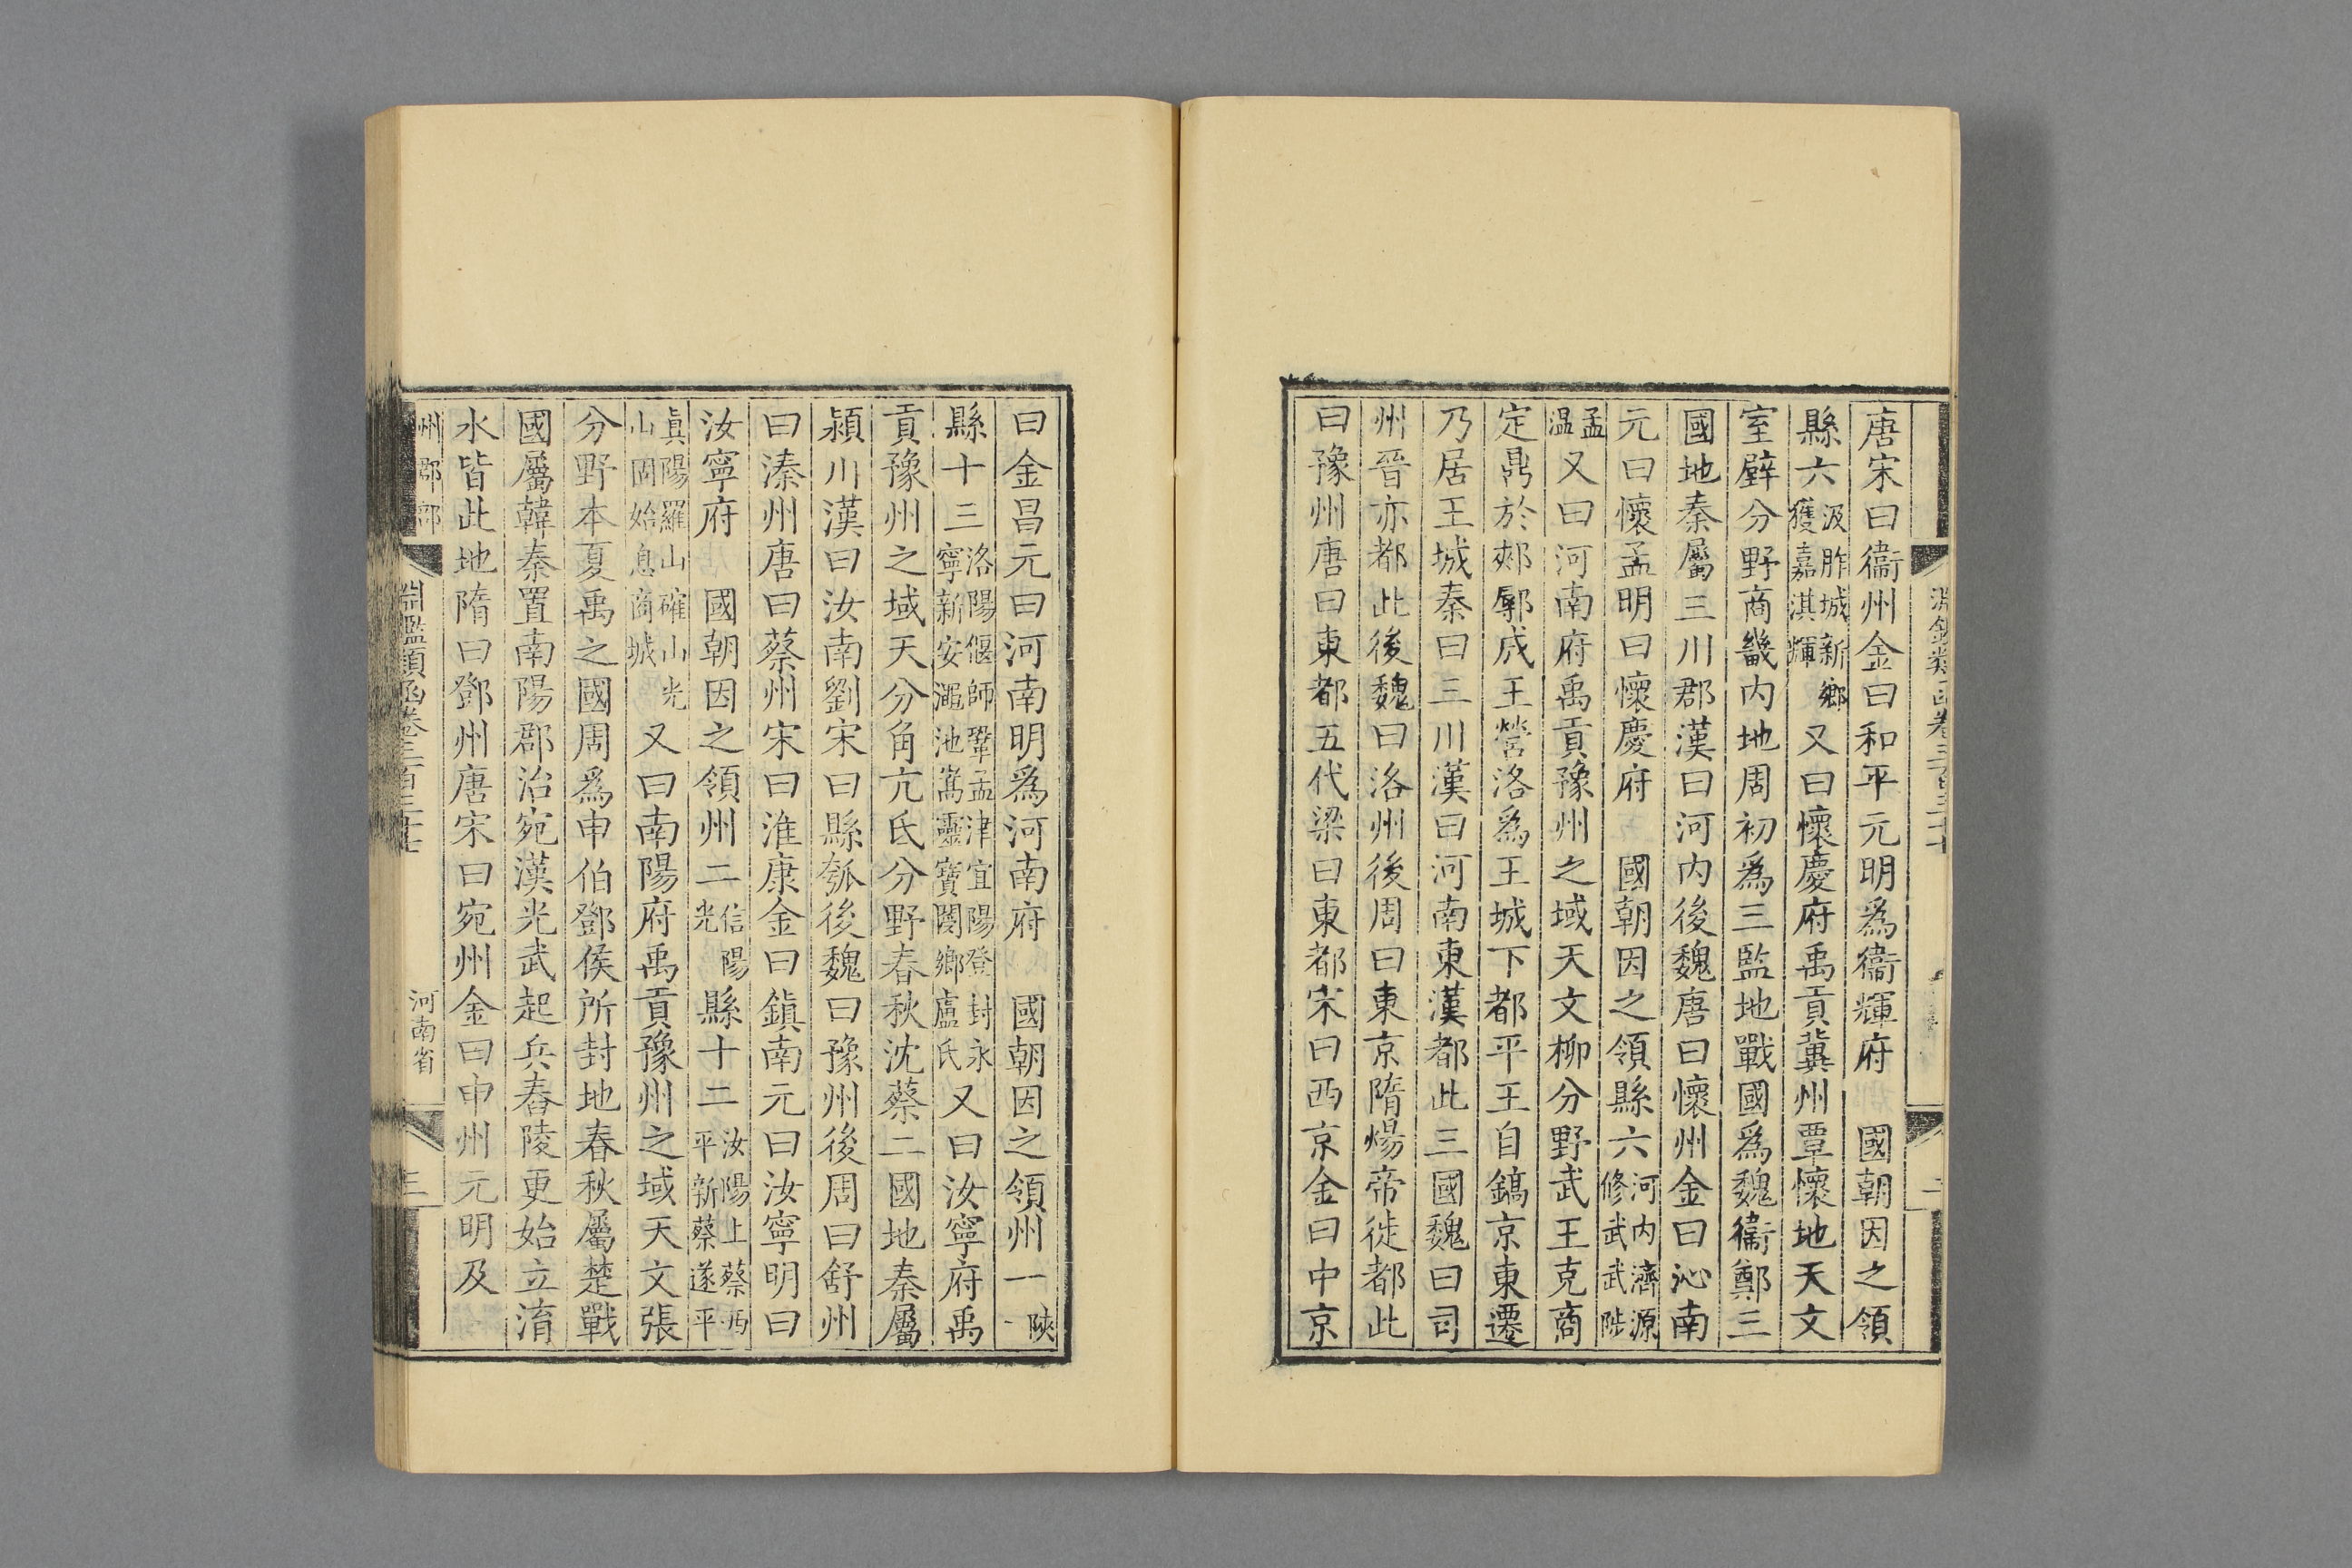 唐宋曰衞州金曰和平元明爲衞輝府　國朝因之領
縣六汲胙城新鄉獲嘉淇輝又曰懷慶府禹貢冀州覃懷地天文
室壁分野商畿内地周初爲三監地戰國爲魏衞鄭三
國地秦屬三川郡漢曰河内後魏唐曰懷州金曰沁南
元曰懷孟明曰懷慶府　國朝因之領縣六河内濟源修武武陟
孟温又曰河南府禹貢豫州之域天文柳分野武王克商
定鼎於郟鄏成王營洛爲王城下都平王自鎬京東遷
乃居王城秦曰三川漢曰河南東漢都此三國魏曰司
州晉亦都此後魏曰洛州後周曰東京隋煬帝徙都此
曰豫州唐曰東都五代梁曰東都宋曰西京金曰中京
曰金昌元曰河南明爲河南府　國朝因之領州一陝
縣十三洛陽偃師鞏孟津宜陽登封永寧新安澠池嵩靈寶閿鄉盧氏又曰汝寧府禹
貢豫州之域天分角亢氐分野春秋沈蔡二國地秦屬
潁川漢曰汝南劉宋曰縣瓠後魏曰豫州後周曰舒州
曰溱州唐曰蔡州宋曰淮康金曰鎮南元曰汝寧明曰
汝寧府　國朝因之領州二信陽光縣十二汝陽上蔡西平新蔡遂平
真陽羅山確山光山固始息商城又曰南陽府禹貢豫州之域天文張
分野本夏禹之國周爲申伯鄧侯所封地春秋屬楚戰
國屬韓秦置南陽郡治宛漢光武起兵舂陵更始立淯
水皆此地隋曰鄧州唐宋曰宛州金曰申州元明及
州郡部
淵鑑類函卷三百三十七
河南省
三